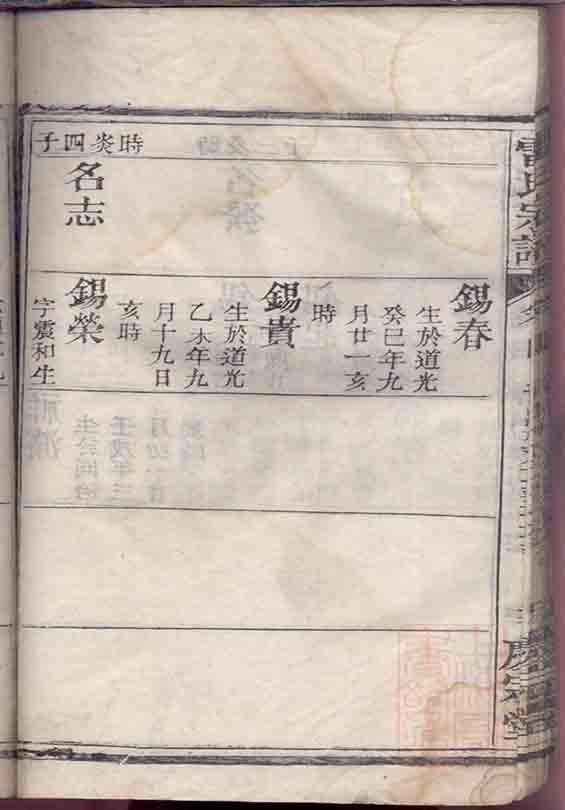 氏宗譜
時炎四子
名志
錫春
生於道光
癸巳年九
月廿一亥
時
錫貴
生於道光
乙未年九
月十九日
亥時
錫榮
字震和生